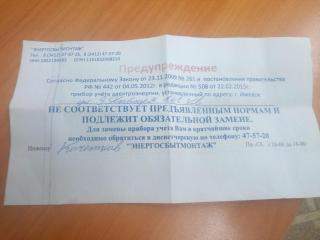 "ЭНЕРГОСБЫТМОНТАЖ"
Тел. 8 (3412) 47-57-20, 8 (3412) 47-07-20
Предупреждение
Согласно Федеральному Закону от 23.11.2009 № 261 и постановления правительства
РФ № 442 от 04.05.2012г. в редакции № 508 от 22.02.2015г.
прибор учёта электроэнергии, установленный по адресу: г. Ижевск
ул.
НЕ СООТВЕТСТВУЕТ ПРЕДЪЯВЛЕННЫМ НОРМАМ И
ПОДЛЕЖИТ ОБЯЗАТЕЛЬНОЙ ЗАМЕНЕ.
Для замены прибора учета Вам в кратчайшие сроки
необходимо обратиться в диспетчерскую по телефону: 47-57-20
Инженер "ЭНЕРГОСБЫТМОНТАЖ"